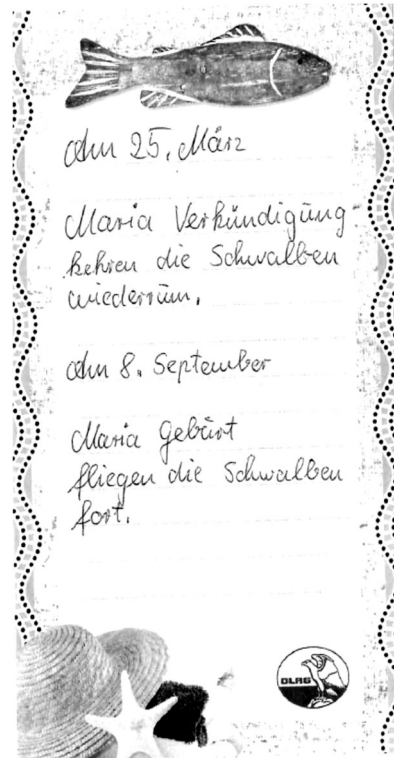 Am 25. März
Maria Verkündigung
kehren die Schwalben
wiederum.
Am 8. September
Maria Geburt
fliegen die Schwalben
fort.
DLRG